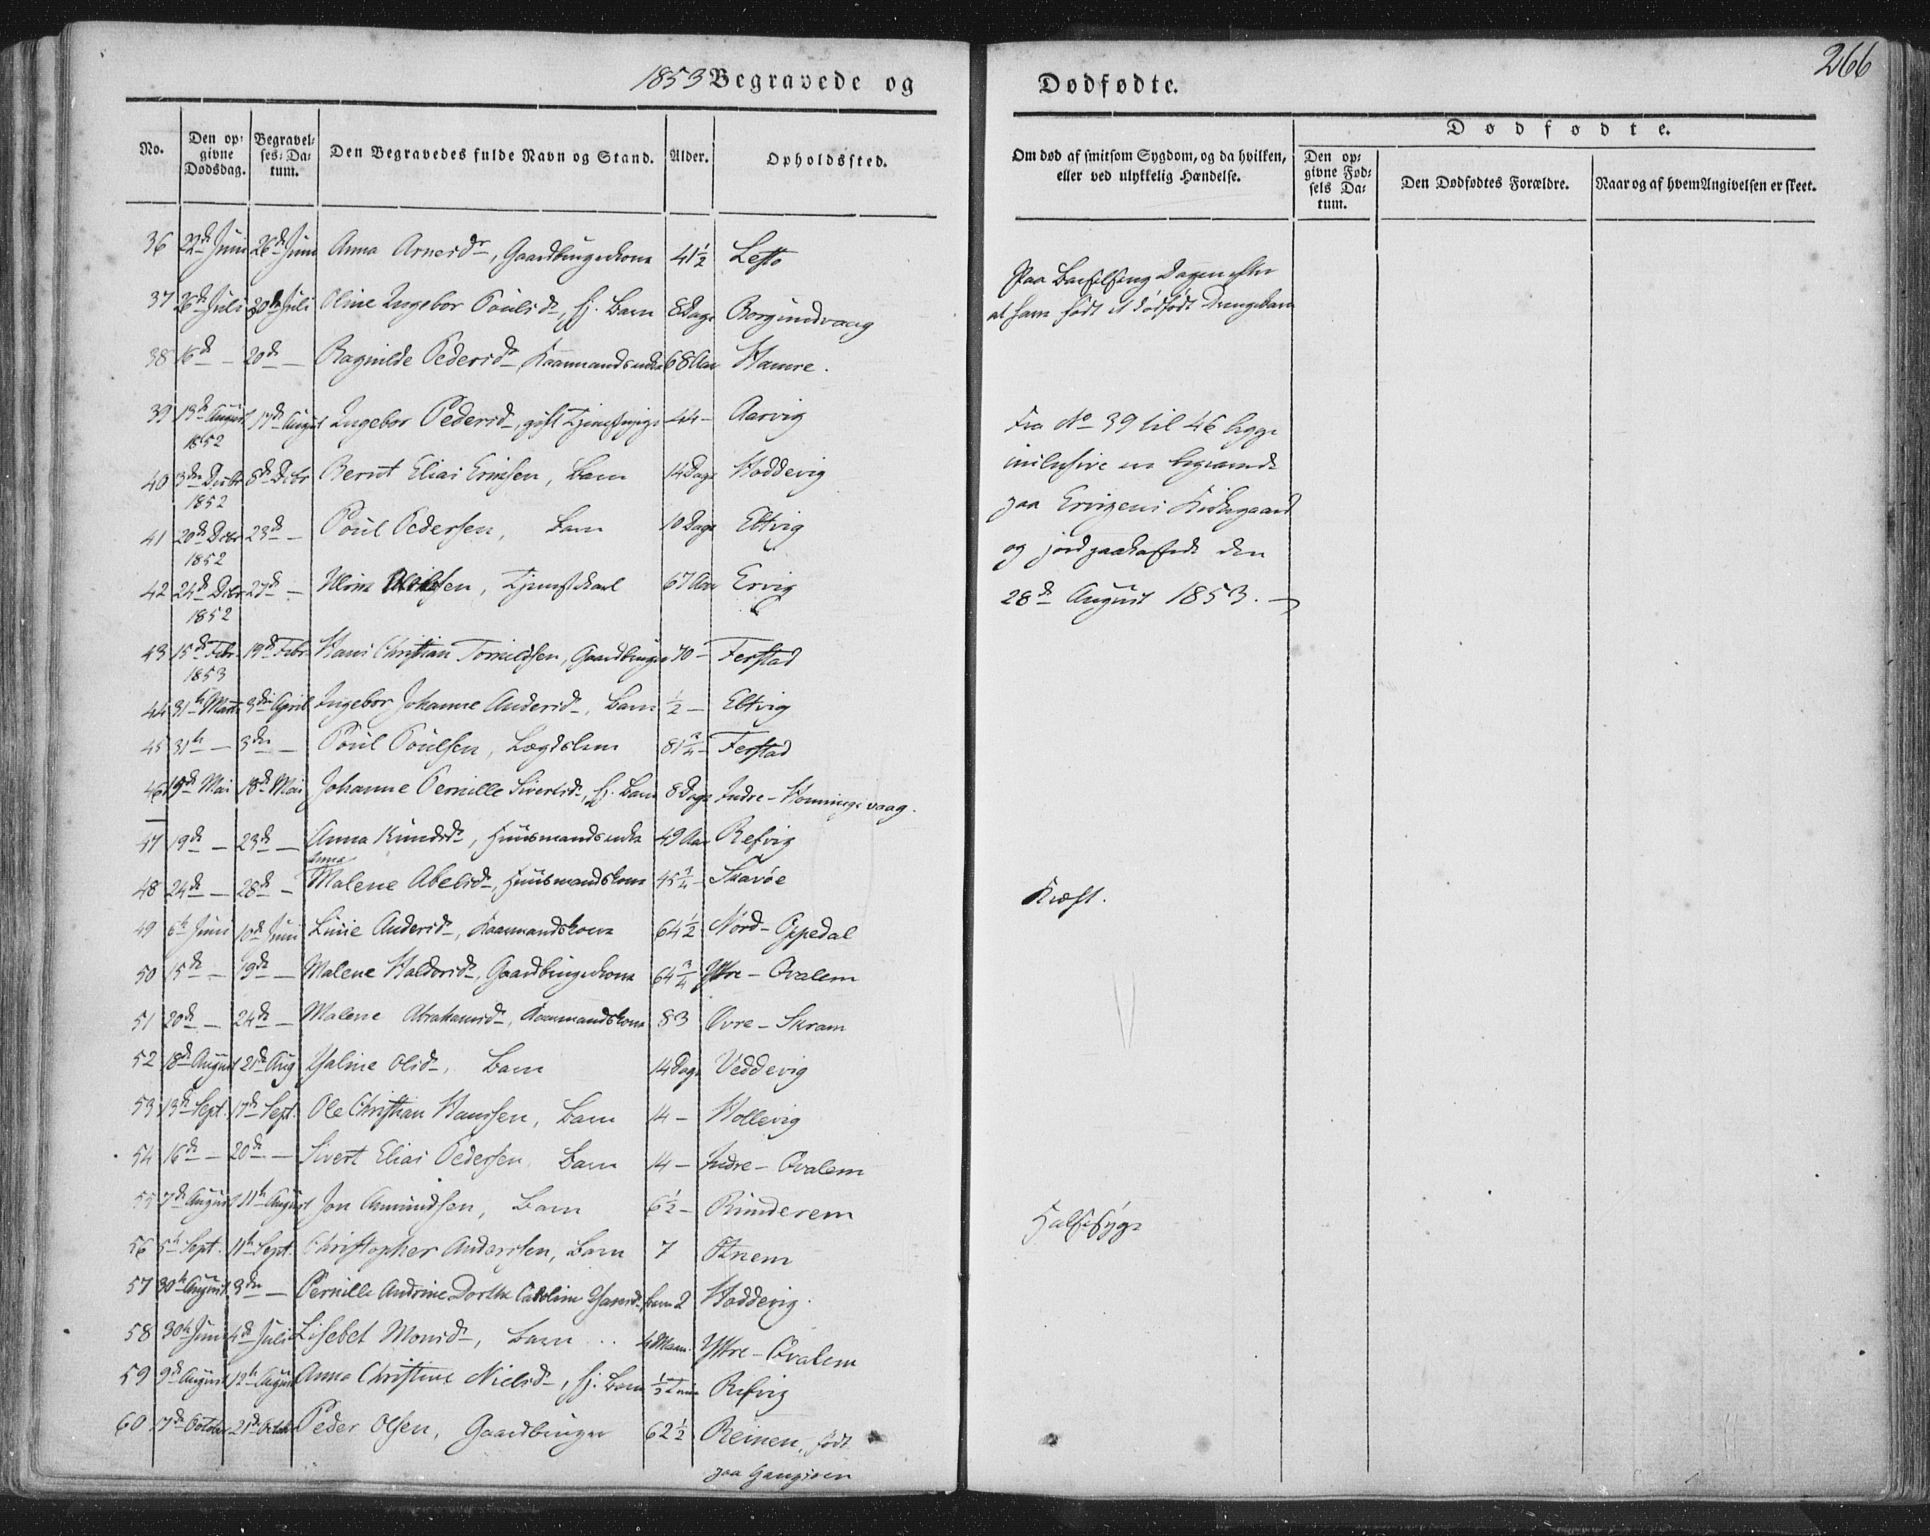 266
1853 Begravede og Dødfødte.
No. Den opgivne Dødsdag. Begravelses-Datum. Den Begravedes fulde Navn og Stand. Alder. Opholdssted.
Om død af smitsom Sygdom, og da hvilken, eller ved ulykkelig Hændelse.
Dødfødte.
Den opgivne Fødsels Datum. Den Dødfødtes Forældre. Naar og af hvem Angivelsen er skeet.
36 22de Juni 26de Juni Anna Arnesdr, Gaardbrugerkone 41½ Lesto
Paa Barselseng Dagen efter
at have født et dødfødt Drengebarn
37 26de Juli 30te Juli Oline Ingebor Poulsdr, hj. Barn 8 Dage Borgundvaag
38 16de — 20de — Ragnilde Pedersdr, Kaarmandsenke 68 Aar Hamre.
39 13de August 17de August Ingebor Pedersdr, gift 44 — Aarvig
1852
40 3die Decbr 8de Decbr Bernt Elias Ericksen, Barn 14 Dage Hoddevig
1852
41 20de Decbr 23de — Poul Pedersen, Barn 10 Dage Eltvig
1852
42 24de Decbr 27de — Tjenestekarl 67 Aar Ervig
1852
Fra No 39 til 46 begge
inclusive er begravede
paa Ervigens Kirkegaard
og jordpaakastede den
28de August 1853. —
43 15de Febr 19de Febr Hans Christian Torkildsen, Gaardbruger 70 — Ferstad
1853
44 31te Marts 3die April Ingebor Johanne Andersdr, Barn ½ — Eltvig
45 31te — 3die — Poul Poulsen, Lægdslem 81¾ — Ferstad
46 15de Mai 18de Mai Johanne Pernille Sivertsdr, hj. Barn 8 Dage Indre-Honningsvaag.
47 19de — 23de — Anna Knudsdr, Huusmandsenke 49 Aar Refvig
Anna
48 24de — 28de — Malene Abelsdr, Huusmandskone 45¾ — Skavøe
Kræft.
49 6te Juni 10de Juni Lisie Andersdr, Kaarmandskone 64½ Nord-Oppedal
50 15de — 19de — Malene Haldorsdr, Gaardbrugerkone 64¾ Yttre-Qvalem
51 20de — 24de — Malene Abrahamsdr, Kaarmandskone 83 Øvre-Skram
52 18de August 21de Aug Hjaline Olsdr, Barn 14 Dage Veddevig
53 13de Sept. 17de Sept. Ole Christian Hanssen, Barn 14 — Hollevig
54 16de — 20de — Sivert Elias Pedersen, Barn 14 — Indre-Qvalem
55 7de August 11te August Jon Amundsen, Barn 6½ — Runderem
Halssyge
56 5te Sept. 11te Sept. Christopher Anderssen, Barn 7 Otnem
57 30te August 3die — Pernille Andrine Dorthe Caroline Hansdr, Barn 2 Hoddevig.
58 30te Juni 4de Juli Lisebet Monsdr, Barn .. 4 Maan. Yttre-Qvalem
59 9de August 12te August Anna Christine Nielsdr, hj. Barn ½ Time Refvig
60 17de October 21de Octobr Peder Olsen, Gaardbruger 62½ Reinen, født
paa Gangsøen